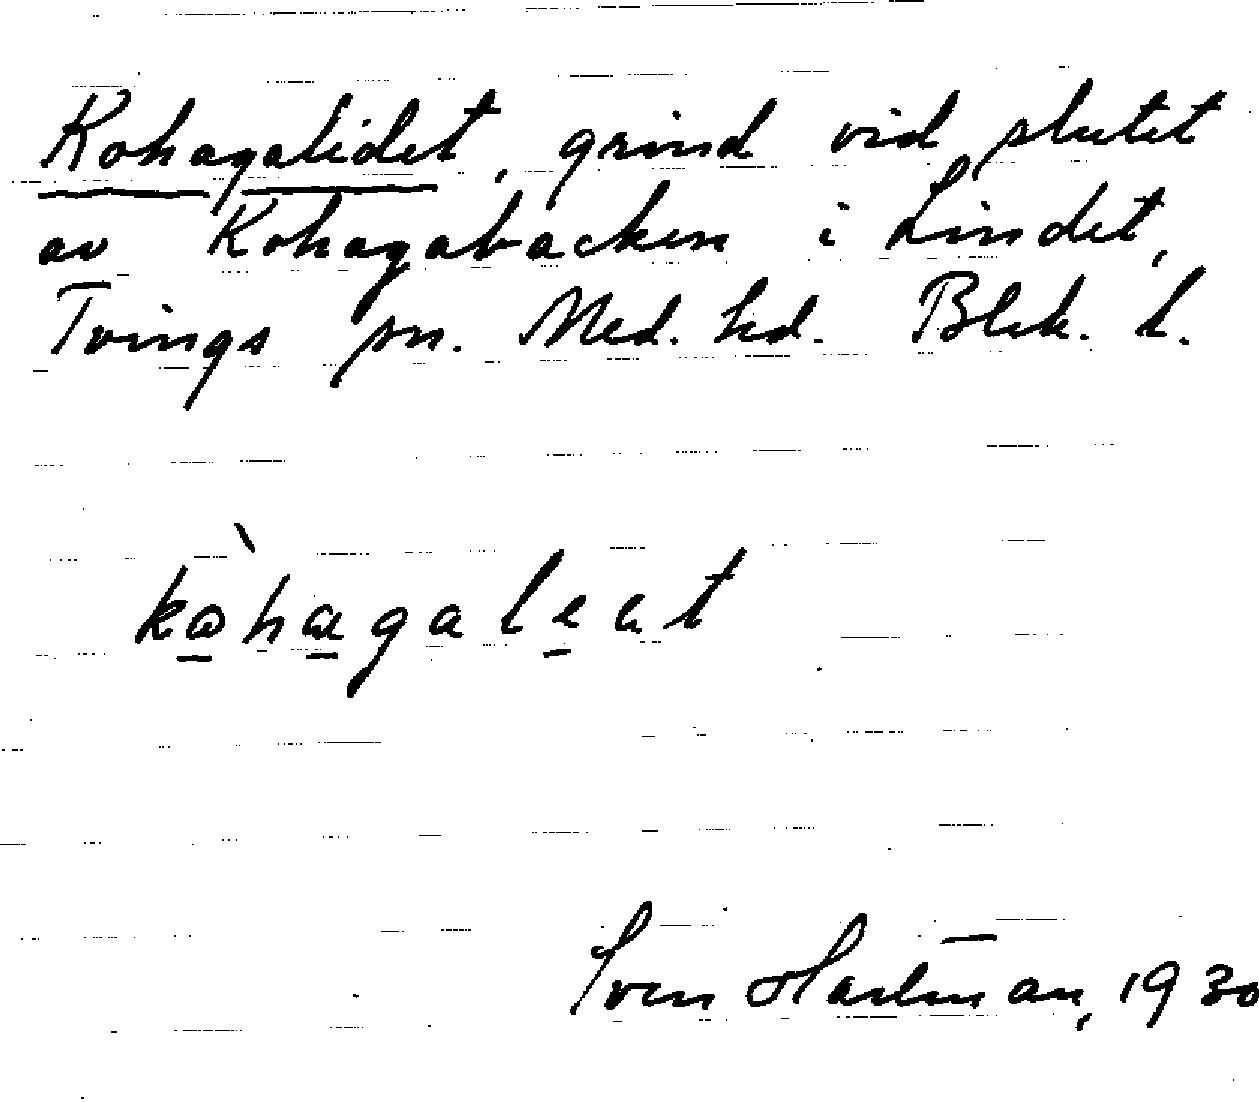 Kohagalidet, grind vid slutet
av Kohagabacken i Lindet,
Tvings sn. Med. hd. Blek. l.
Sven Hartman, 1930